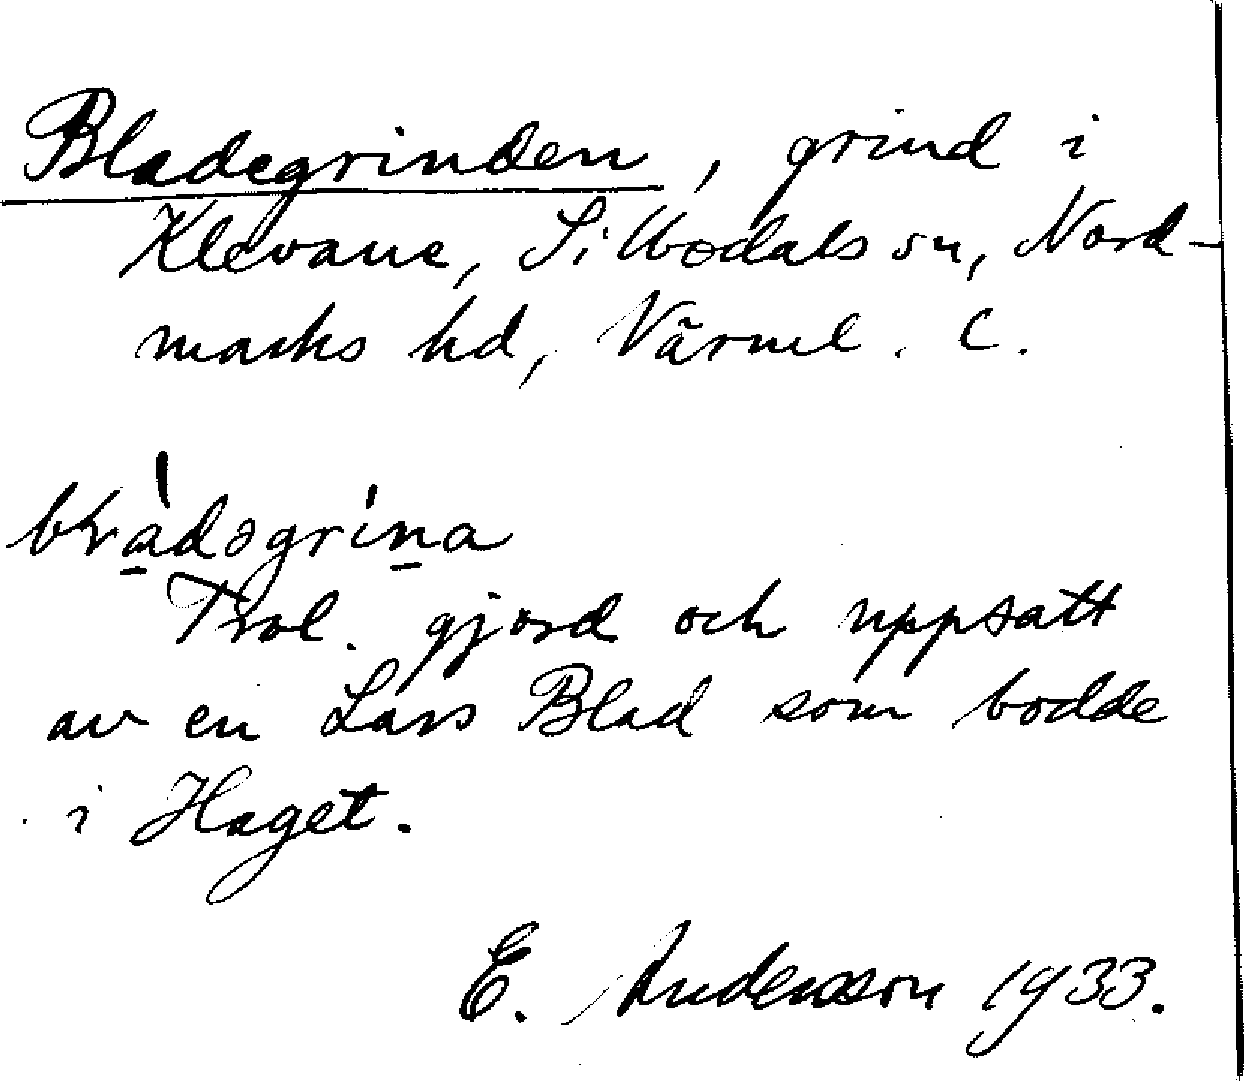 Bladegrinden, grind i
Klevane, Sillbodals sn, Nord-
marks hd, Värml. C.
bɽàdəgrìna
Trol. gjord och uppsatt
av en Lars Blad som bodde
i Haget.
E. Andersson 1933.